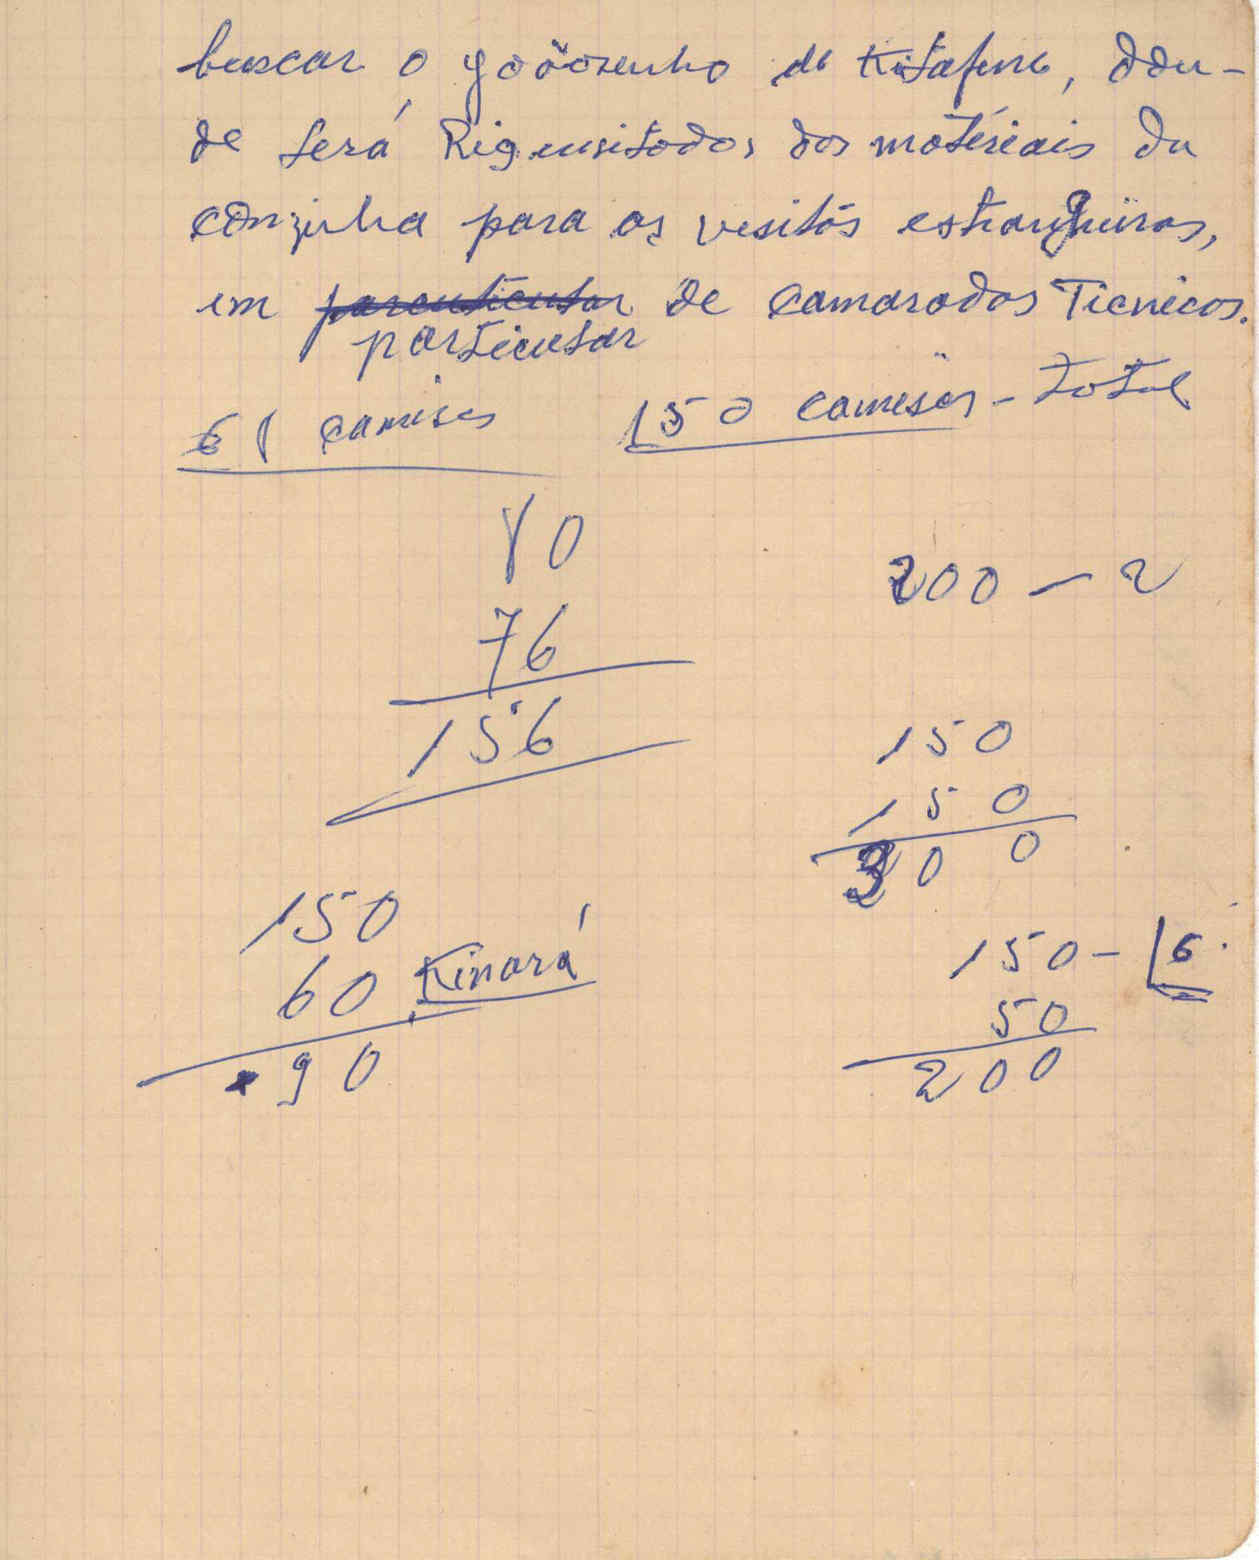 buscar o Joãosinho de Kitafine, don-
de será Riquisitados dos matériais da
conzinha para as visitas estrangeiras,
em particular de camaradas Ticnicos.
68 camisas 150 camisas - total
80
76
156
200 - 2
150
150
300
150
60 Kinará
90
150 - 6
50
200